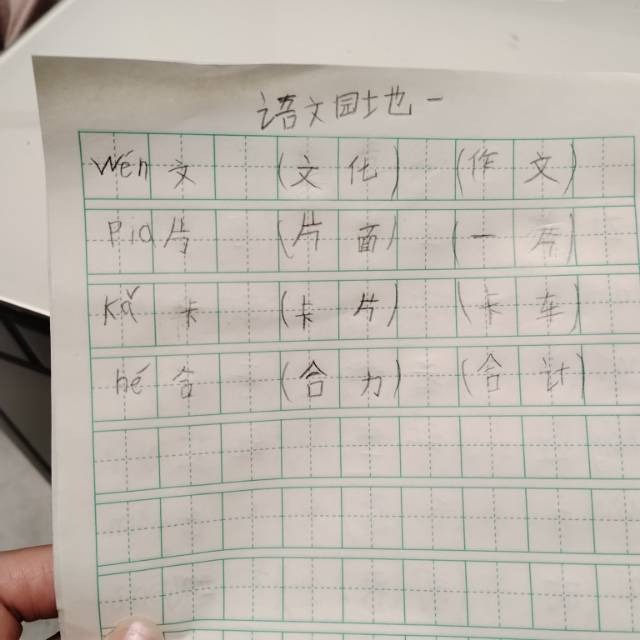 语文园地一
wén 文 (文化) (作文)
pià 片 (片面) (一
kǎ 卡 (卡片) (卡车)
hé 合 (合力) (合计)